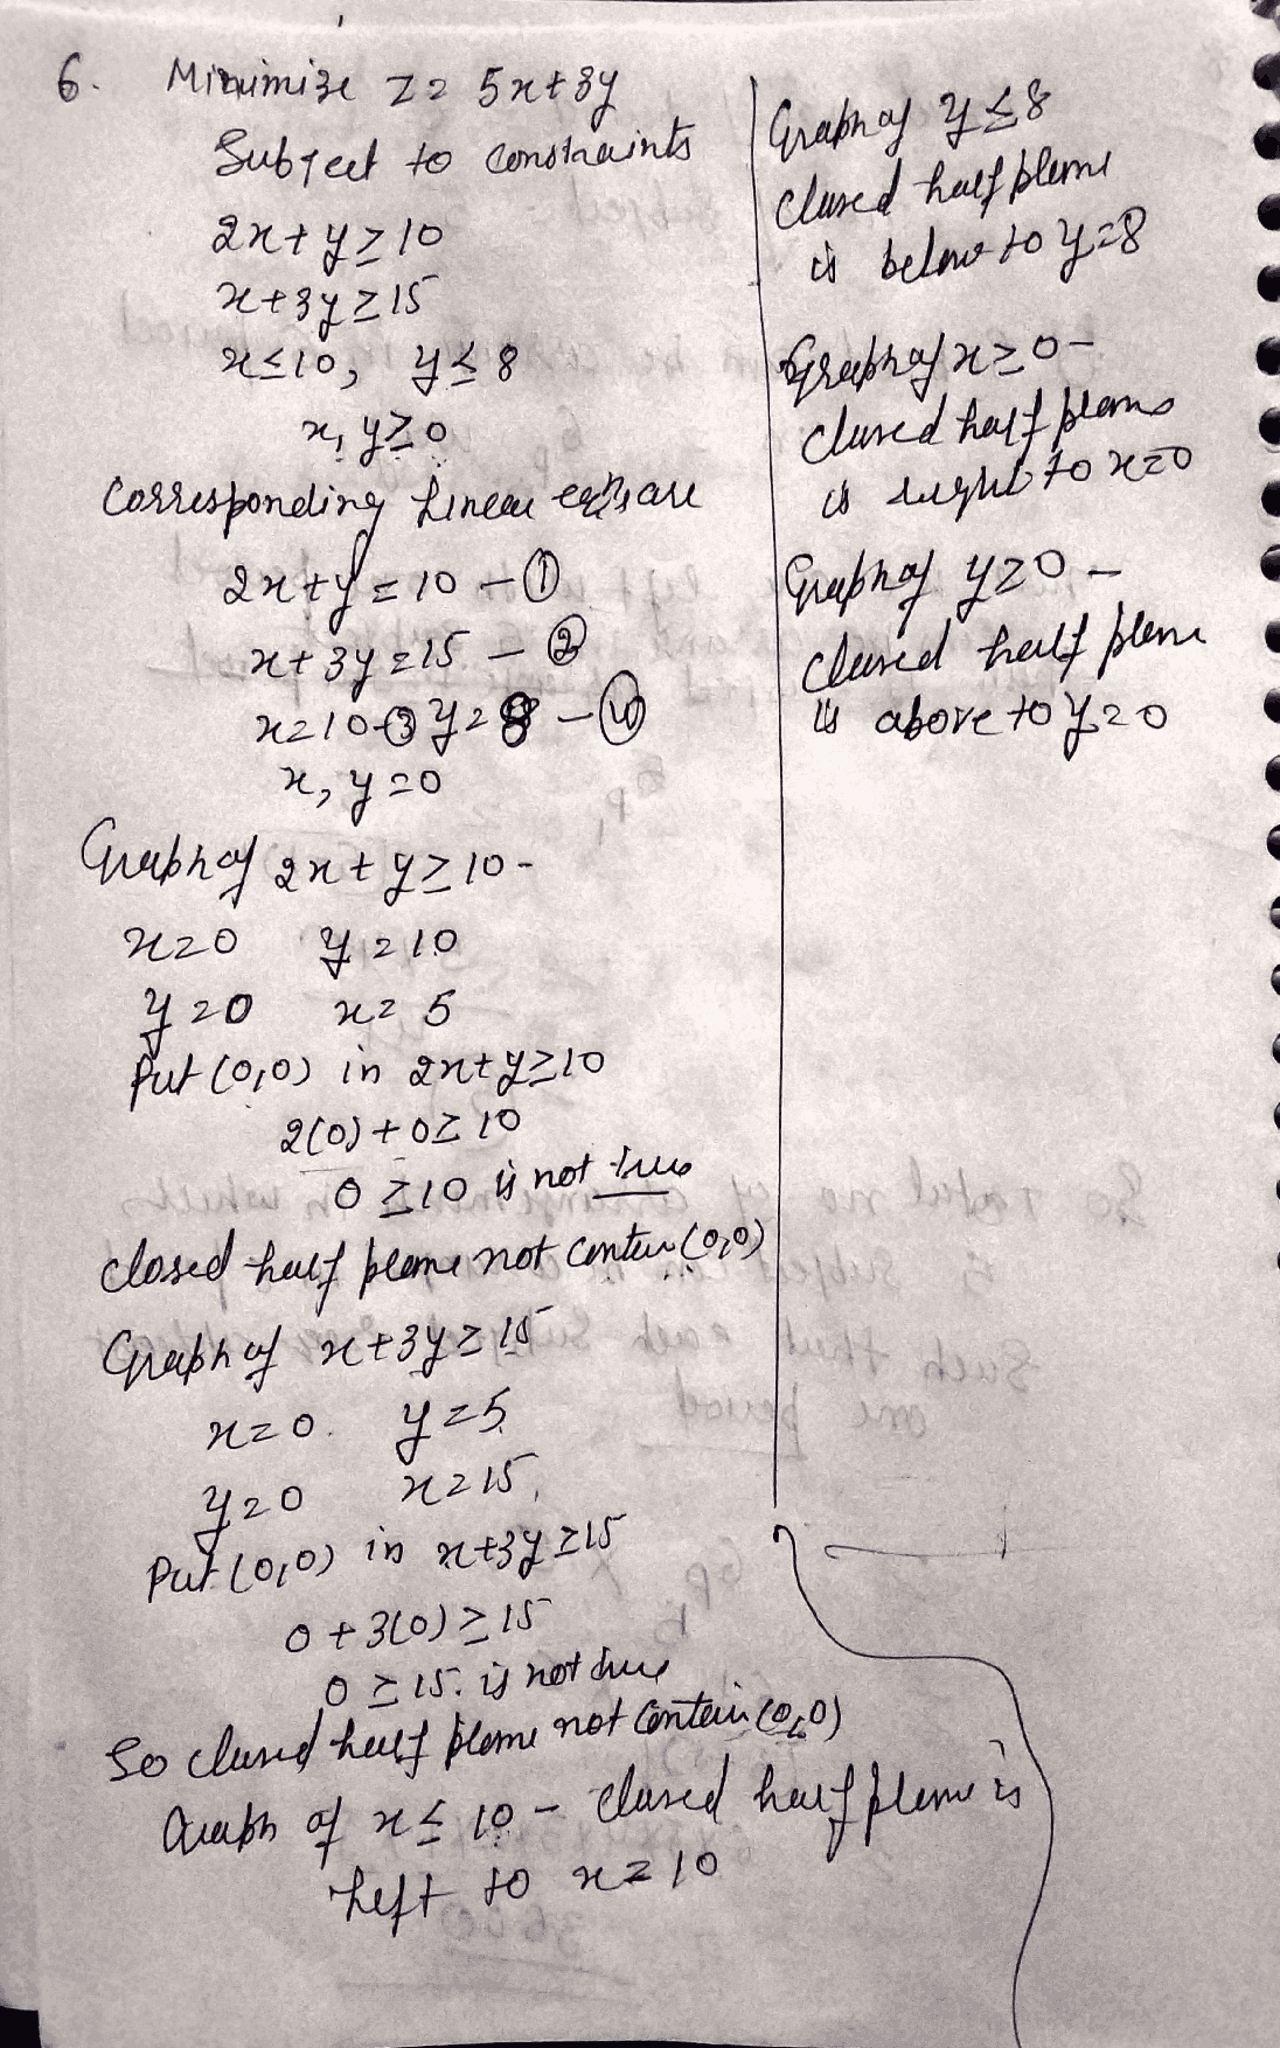 6. Minimize Z = 5x+3y
Subject to constraints
2x+y ≥ 10
x+3y ≥ 15
x ≤ 10, y ≤ 8
x, y ≥ 0
Corresponding Linear eqns are
2x+y = 10 - ①
x+3y = 15 - ②
x=10-③ y=8 - ④
x, y = 0
Graph of 2x+y ≥ 10-
x=0 y=10
y=0 x=5
Put (0,0) in 2x+y ≥ 10
2(0)+0 ≥ 10
0 ≥ 10 is not true
closed half plane not contain (0,0)
Graph of x+3y ≥ 15
x=0. y=5
y=0 x=15
Put (0,0) in x+3y ≥ 15
0+3(0) ≥ 15
0 ≥ 15. is not true
So closed half plane not contain (0,0)
Graph of x ≤ 10 - closed half plane is
Left to x=10
Graph of y ≤ 8
closed half plane
is below to y=8
Graph of x ≥ 0-
closed half plane
is right to x=0
Graph of y ≥ 0-
closed half plane
is above to y=0